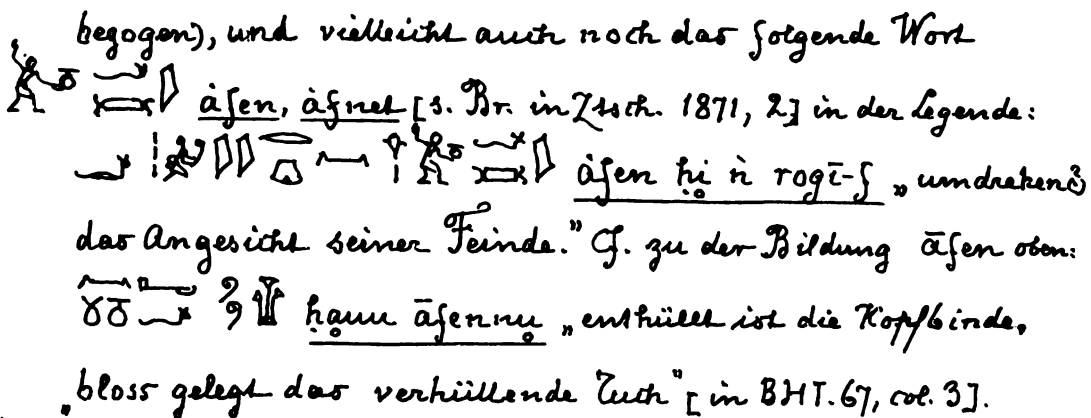 begogen), und vielleicht auch noch das folgende Wort
àfen, àfnet [s. Br. in Ztsch. 1871, 2] in der Legende:
àfen ḥi ǹ roqī-f „umdrehend
das Angesicht seiner Feinde.“ Cf. zu der Bildung āfen oben:
ḥauu āfennu „enthüllt ist die Kopfbinde,
„bloss gelegt das verhüllende Tuch“ [in BHI. 67, col. 3].